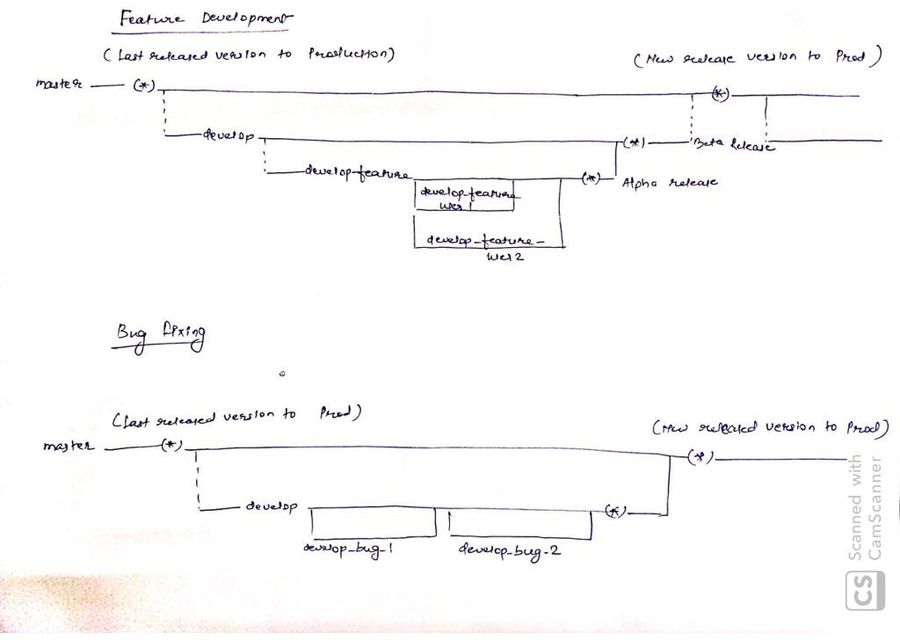 Feature Development
(Last released version to Production)
(New release version to Prod)
master (*)
(*)
develop
(*)
Beta Release
develop-feature
(*)
Alpha release
develop-feature
user 1
develop-feature-
user 2
Bug Fixing
(Last released version to Prod)
(New released version to Prod)
master (*)
(*)
develop
(*)
develop-bug-1
develop-bug-2
CS
Scanned with
CamScanner